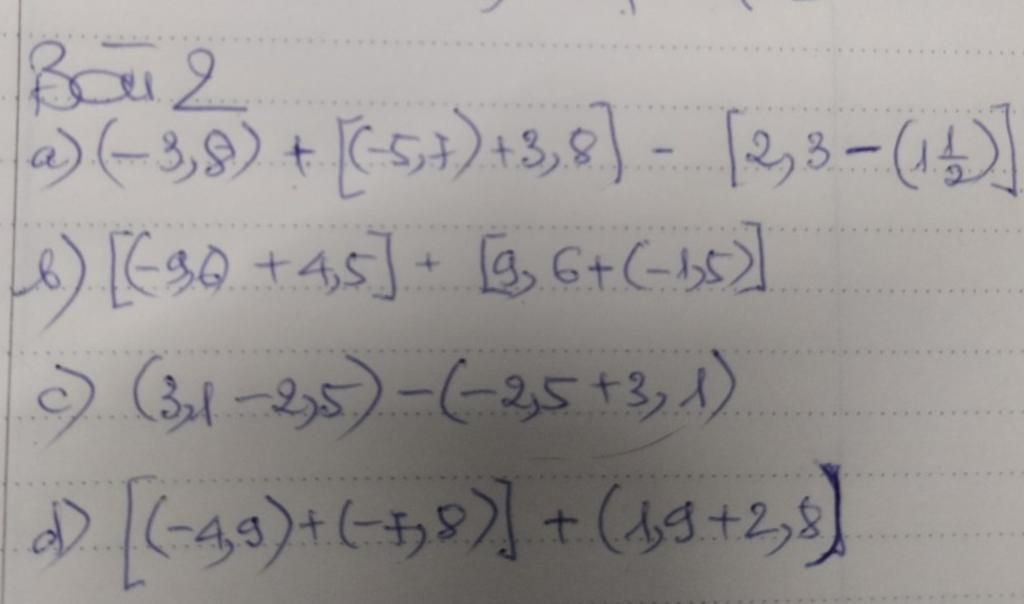 Bài 2
a) (-3,8) + [(-5,7) + 3,8] - [2,3 - (1 1/2)]
b) [(-9,6) + 4,5] + [9,6 + (-1,5)]
c) (3,1 - 2,5) - (-2,5 + 3,1)
d) [(-4,9) + (-7,8)] + (1,9 + 2,8]